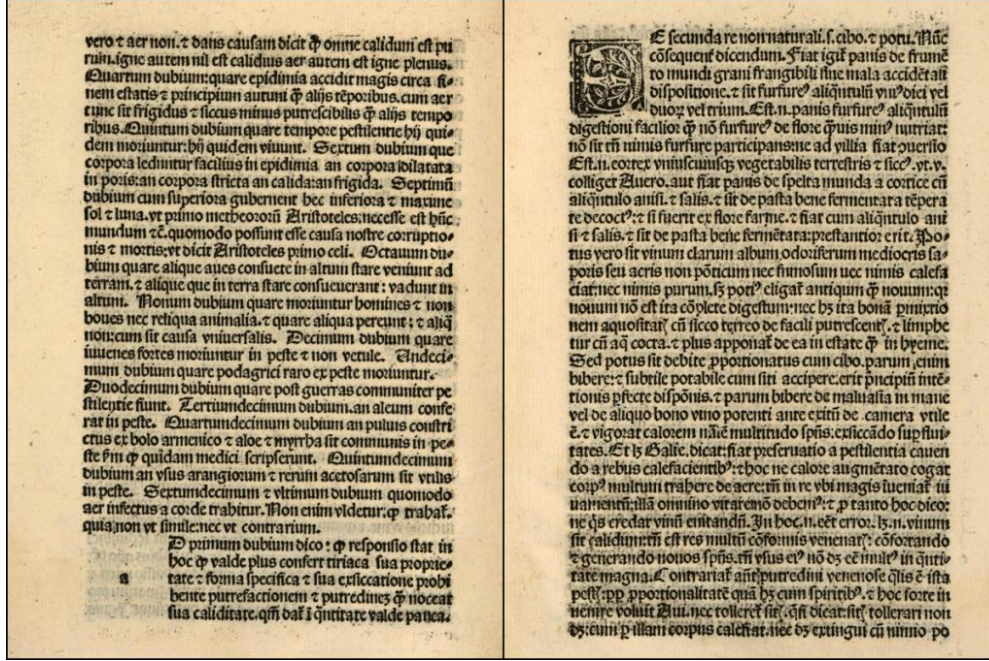 vero ⁊ aer non. ⁊ dans causam dicit ꝙ omne calidum est pu
rum. igne autem nil est calidius aer autem est igne plenus.
Quartum dubium: quare epidimia accidit magis circa fi-
nem estatis ⁊ principium autuni ꝙ alijs tēporibus. cum aer
tunc sit frigidus ⁊ siccus minus putrescibilis ꝙ alijs tempo
ribus. Quintum dubium quare tempore pestilentie hij qui-
dem moriuntur: hij quidem viuunt. Sextum dubium que
corpora leduntur facilius in epidimia an corpora dilatata
in poris: an corpora stricta an calida: an frigida. Septimū
dubium cum superiora gubernent hec inferiora ⁊ maxime
sol ⁊ luna. vt primo metheororū Aristoteles: necesse est hūc
mundum ⁊c̄. quomodo possunt esse causa nostre corruptio-
nis ⁊ mortis: vt dicit Aristoteles primo celi. Octauum du-
bium quare alique aues consuete in altum stare veniunt ad
terram. ⁊ alique que in terra stare consueuerant: vadunt in
altum. Nonum dubium quare moriuntur homines ⁊ non
boues nec reliqua animalia. ⁊ quare aliqua pereunt: ⁊ aliq̄
non: cum sit causa vniuersalis. Decimum dubium quare
iuuenes fortes moriuntur in peste ⁊ non vetule. Undeci-
mum dubium quare podagrici raro ex peste moriuntur.
Duodecimum dubium quare post guerras communiter pe
stilētie fiunt. Tertiumdecimum dubium. an aleum confe
rat in peste. Quartumdecimum dubium an puluis constri
ctus ex bolo armenico ⁊ aloe ⁊ myrrha sit communis in pe-
ste ꝓm ꝙ quidam medici scripserunt. Quintumdecimum
dubium an vsus arangiorum ⁊ rerum acetosarum sit vtilis
in peste. Sextumdecimum ⁊ vltimum dubium quomodo
aer infectus a corde trahitur. Non enim videtur: ꝙ trahat̄.
quia non vt simile: nec vt contrarium.
a D primum dubium dico: ꝙ responsio stat in
hoc ꝙ valde plus confert tiriaca sua proprie-
tate ⁊ forma specifica ⁊ sua exsiccatione prohi
bente putrefactionem ⁊ putredinez ꝙ noceat
sua caliditate. qn̄ daṫ ī q̄ntitate valde pauca.
DE secunda re non naturali. s. cibo. ⁊ potu. Nūc
cōsequent̄ dicendum. Fiat igiṫ panis de frumē
to mundi grani frangibili siue mala accidētali
dispositione. ⁊ sit furfureꝰ aliq̄ntulū vniꝰ diei vel
duoꝝ vel trium. Est. n. panis furfureꝰ aliq̄ntulū
digestioni facilior ꝙ nō furfureꝰ de flore q̄uis minꝰ nutriat:
nō sit tn̄ nimis furfure participans: ne ad villia fiat ꝯuersio
Est. n. cortex vniuscuiusqꝫ vegetabilis terrestris ⁊ siccꝰ. vt. v.
colliget Auero. aut fiat panis de spelta munda a cortice cū
aliq̄ntulo anisi. ⁊ salis. ⁊ sit de pasta bene fermentata tēpera
te decoctꝰ: ⁊ si fuerit ex flore farine. ⁊ fiat cum aliq̄ntulo ani
si ⁊ salis. ⁊ sit de pasta bene fermētata: prestantior erit. Po-
tus vero sit vinum clarum album odoriferum mediocris sa-
poris seu acris non pōticum nec fumosum nec nimis calefa
ciat: nec nimis purum. sꝫ potiꝰ eligaṫ antiquum ꝙ nouum: qꝛ
nouum nō est ita cōplete digestum: nec hꝫ ita bonā ꝑmixtio
nem aquositatꝭ cū sicco terreo de facili putrescentꝭ. ⁊ limphe
tur cū aq̄ cocta. ⁊ plus apponaṫ de ea in estate ꝙ in hyeme.
Sed potus sit debite ꝓportionatus cum cibo. parum enim
bibere: ⁊ subtile potabile cum siti accipere: erit p̄ncipiū intē-
tionis ꝑfecte dispōnis. ⁊ parum bibere de maluasia in mane
vel de aliquo bono vino potenti ante exitū de camera vtile
ē. ⁊ vigorat calorem nāle multitudo spūs: exsiccādo suꝑflui-
tates. Et lꝫ Galie. dicat: fiat preseruatio a pestilentia cauen
do a rebus calefacientibꝰ: ⁊ hoc ne calore augmētato cogat
corpꝰ multum trahere de aere: tn̄ in re vbi magis īueniaṫ iu
uamentū: illā omnino vitare nō debemꝰ: ⁊ ꝓ tanto hoc dico:
ne q̄s credat vinū euitandū. In hoc. n. eēt error. lꝫ. n. vinum
sit calidum: tn̄ est res multū cōformis venenatꝭ: cōfortando
⁊ generando nouos spūs. tn̄ vsus eiꝰ nō dꝫ eē multꝰ in q̄nti-
tate magna. Contrariaṫ aūt putredini venenose q̄lis ē ista
pestꝭ: ꝓꝑ ꝓportionalitatē quā hꝫ cum spiritibꝰ. ⁊ hoc forte in
nenire voluit Aui. nec tolleret sitꝭ. qn̄ dicat: sitꝭ tollerari non
dꝫ: cum ꝑ illam corpus calefiat. nec dꝫ extingui cū nimio po